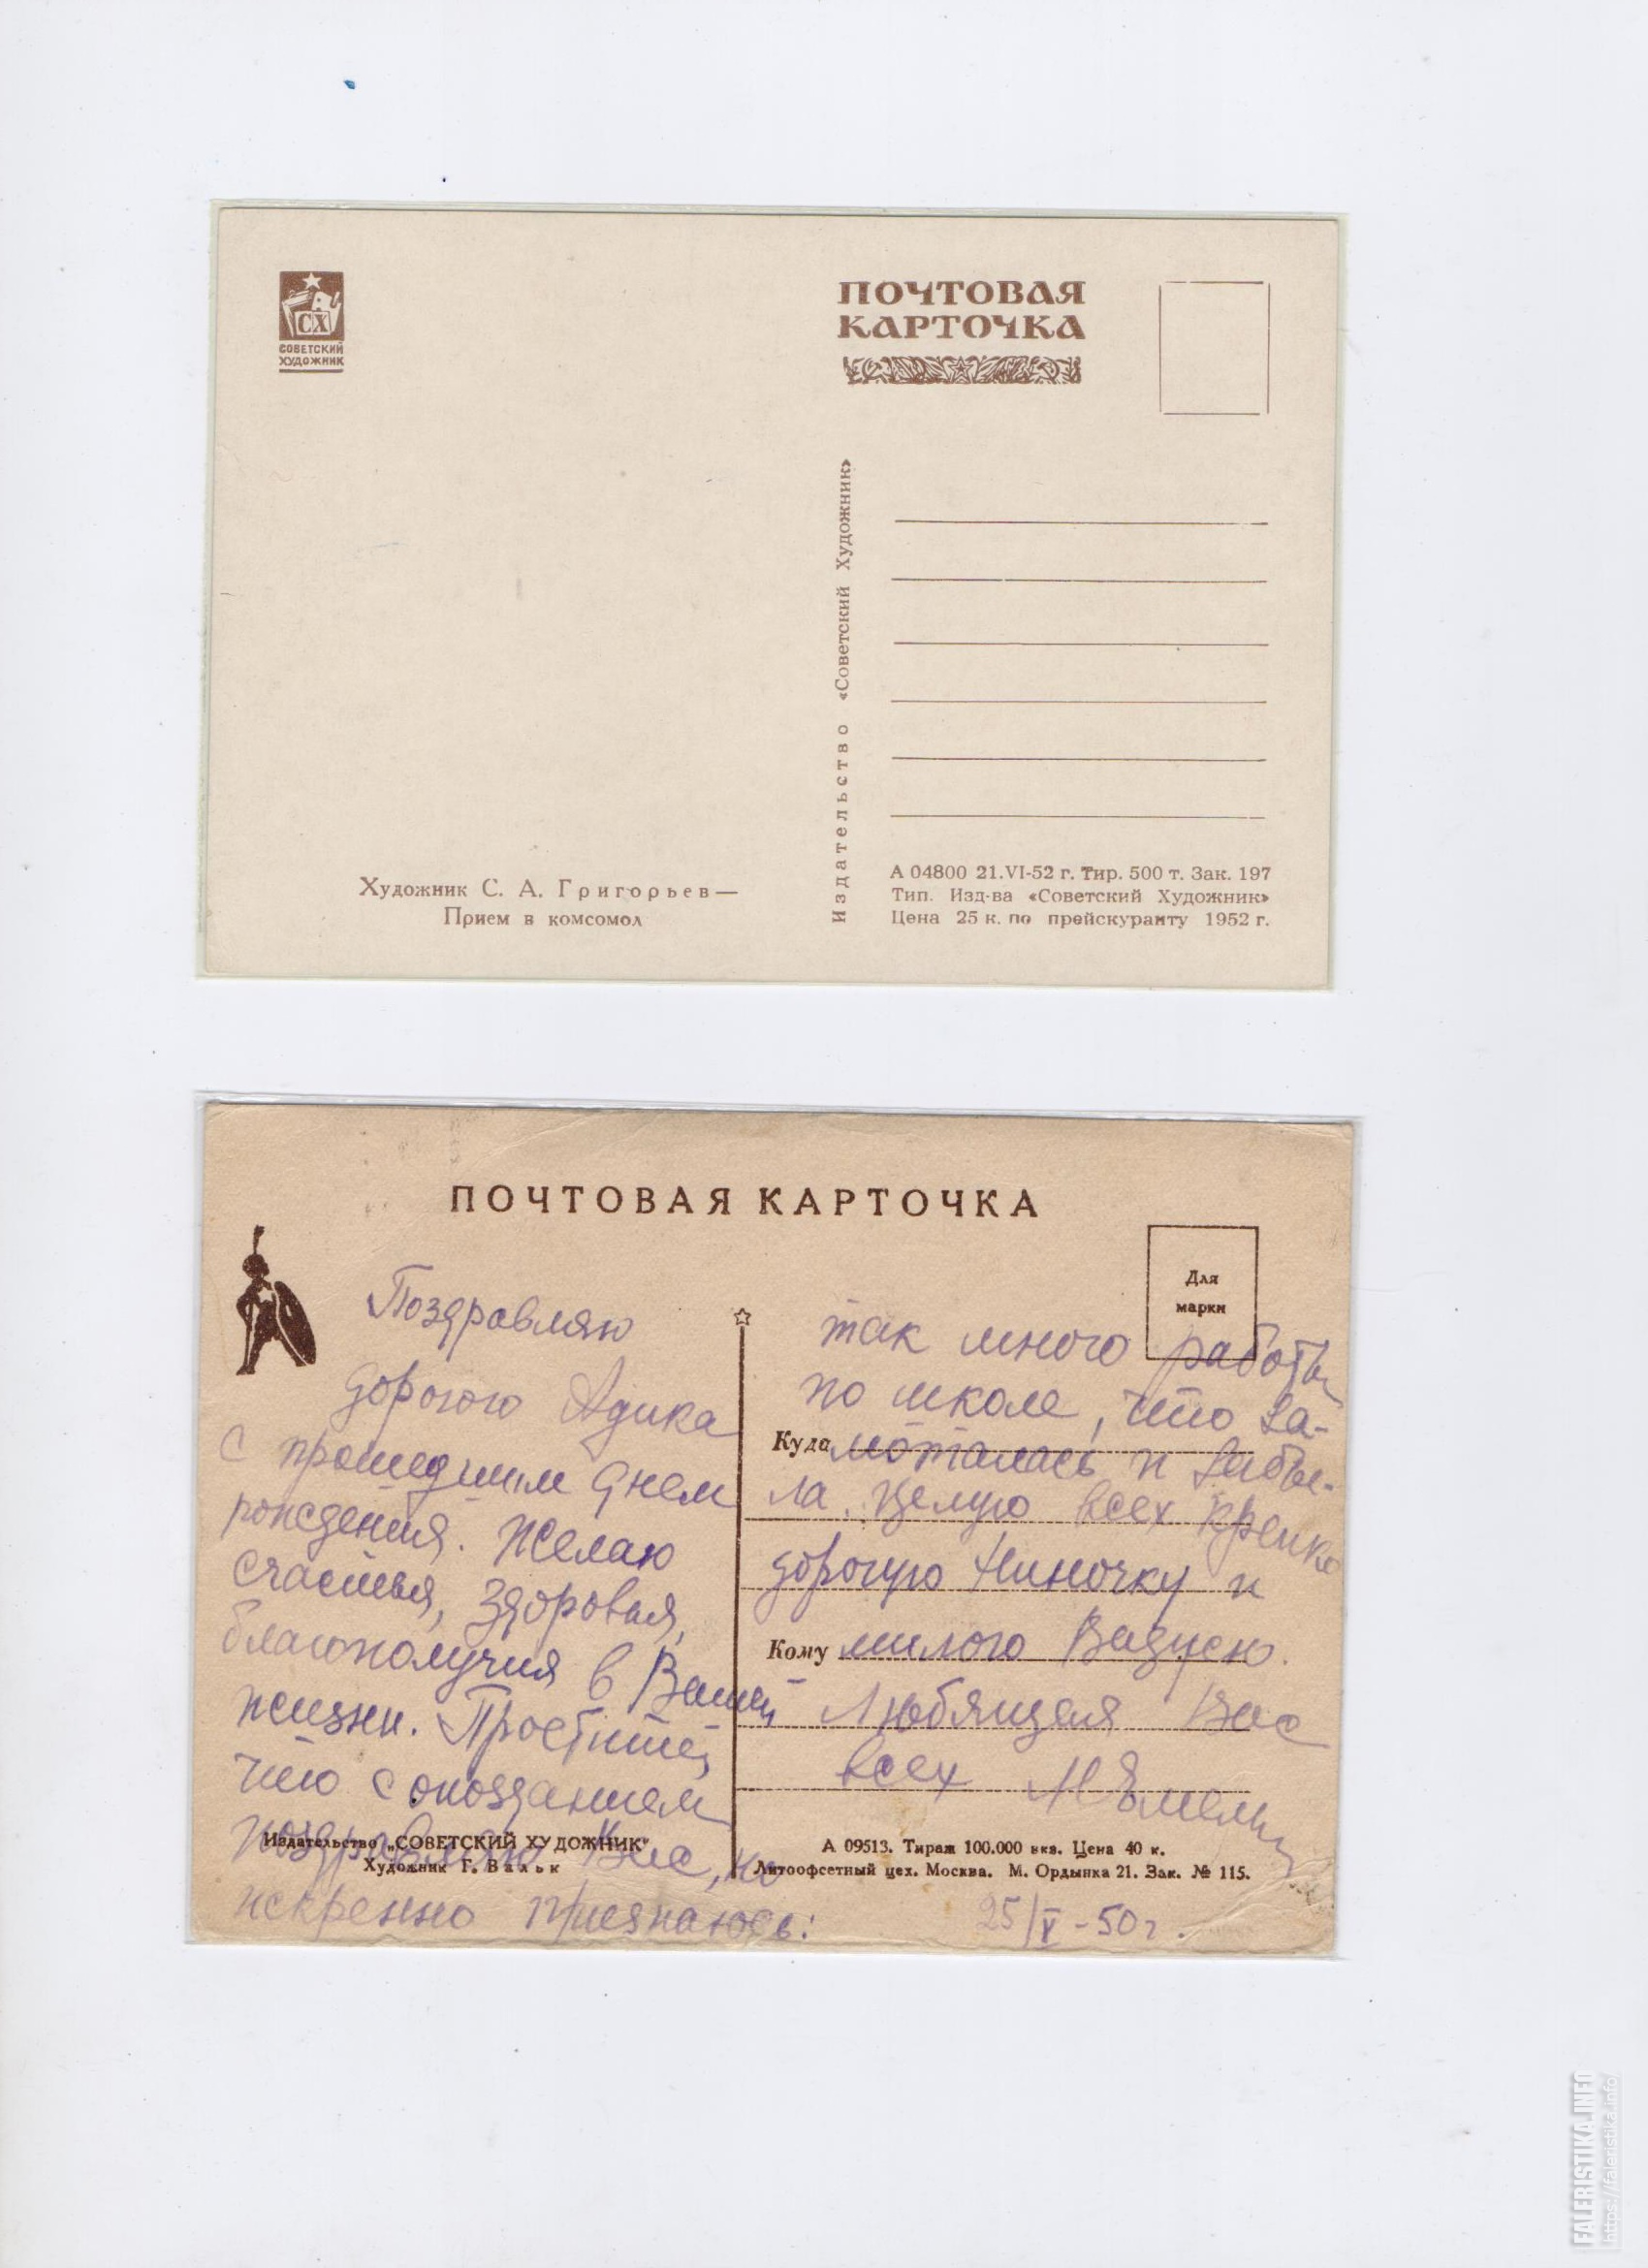 СХ
СОВЕТСКИЙ
ХУДОЖНИК
ПОЧТОВАЯ
КАРТОЧКА
Издательство «Советский Художник»
Художник С. А. Григорьев—
Прием в комсомол
А 04800 21.VI-52 г. Тир. 500 т. Зак. 197
Тип. Изд-ва «Советский Художник»
Цена 25 к. по прейскуранту 1952 г.
ПОЧТОВАЯ КАРТОЧКА
Для
марки
Поздравляю
дорогого Адика
с прошедшим днем
рождения. Желаю
счастья, здоровья,
благополучия в Вашей
жизни. Простите,
что с опозданием
поздравляю Вас, но
искренно признаюсь:
Издательство „СОВЕТСКИЙ ХУДОЖНИК"
Художник Г. Вальк
так много работы
по школе, что за-
Куда
моталась и забы-
ла. Целую всех крепко
дорогую Ниночку и
Кому
милого Вадусю.
Любящая Вас
всех
А 09513. Тираж 100.000 экз. Цена 40 к.
Литоофсетный цех. Москва. М. Ордынка 21. Зак. № 115.
25/V-50г.
FALERISTIKA.INFO
https://faleristika.info